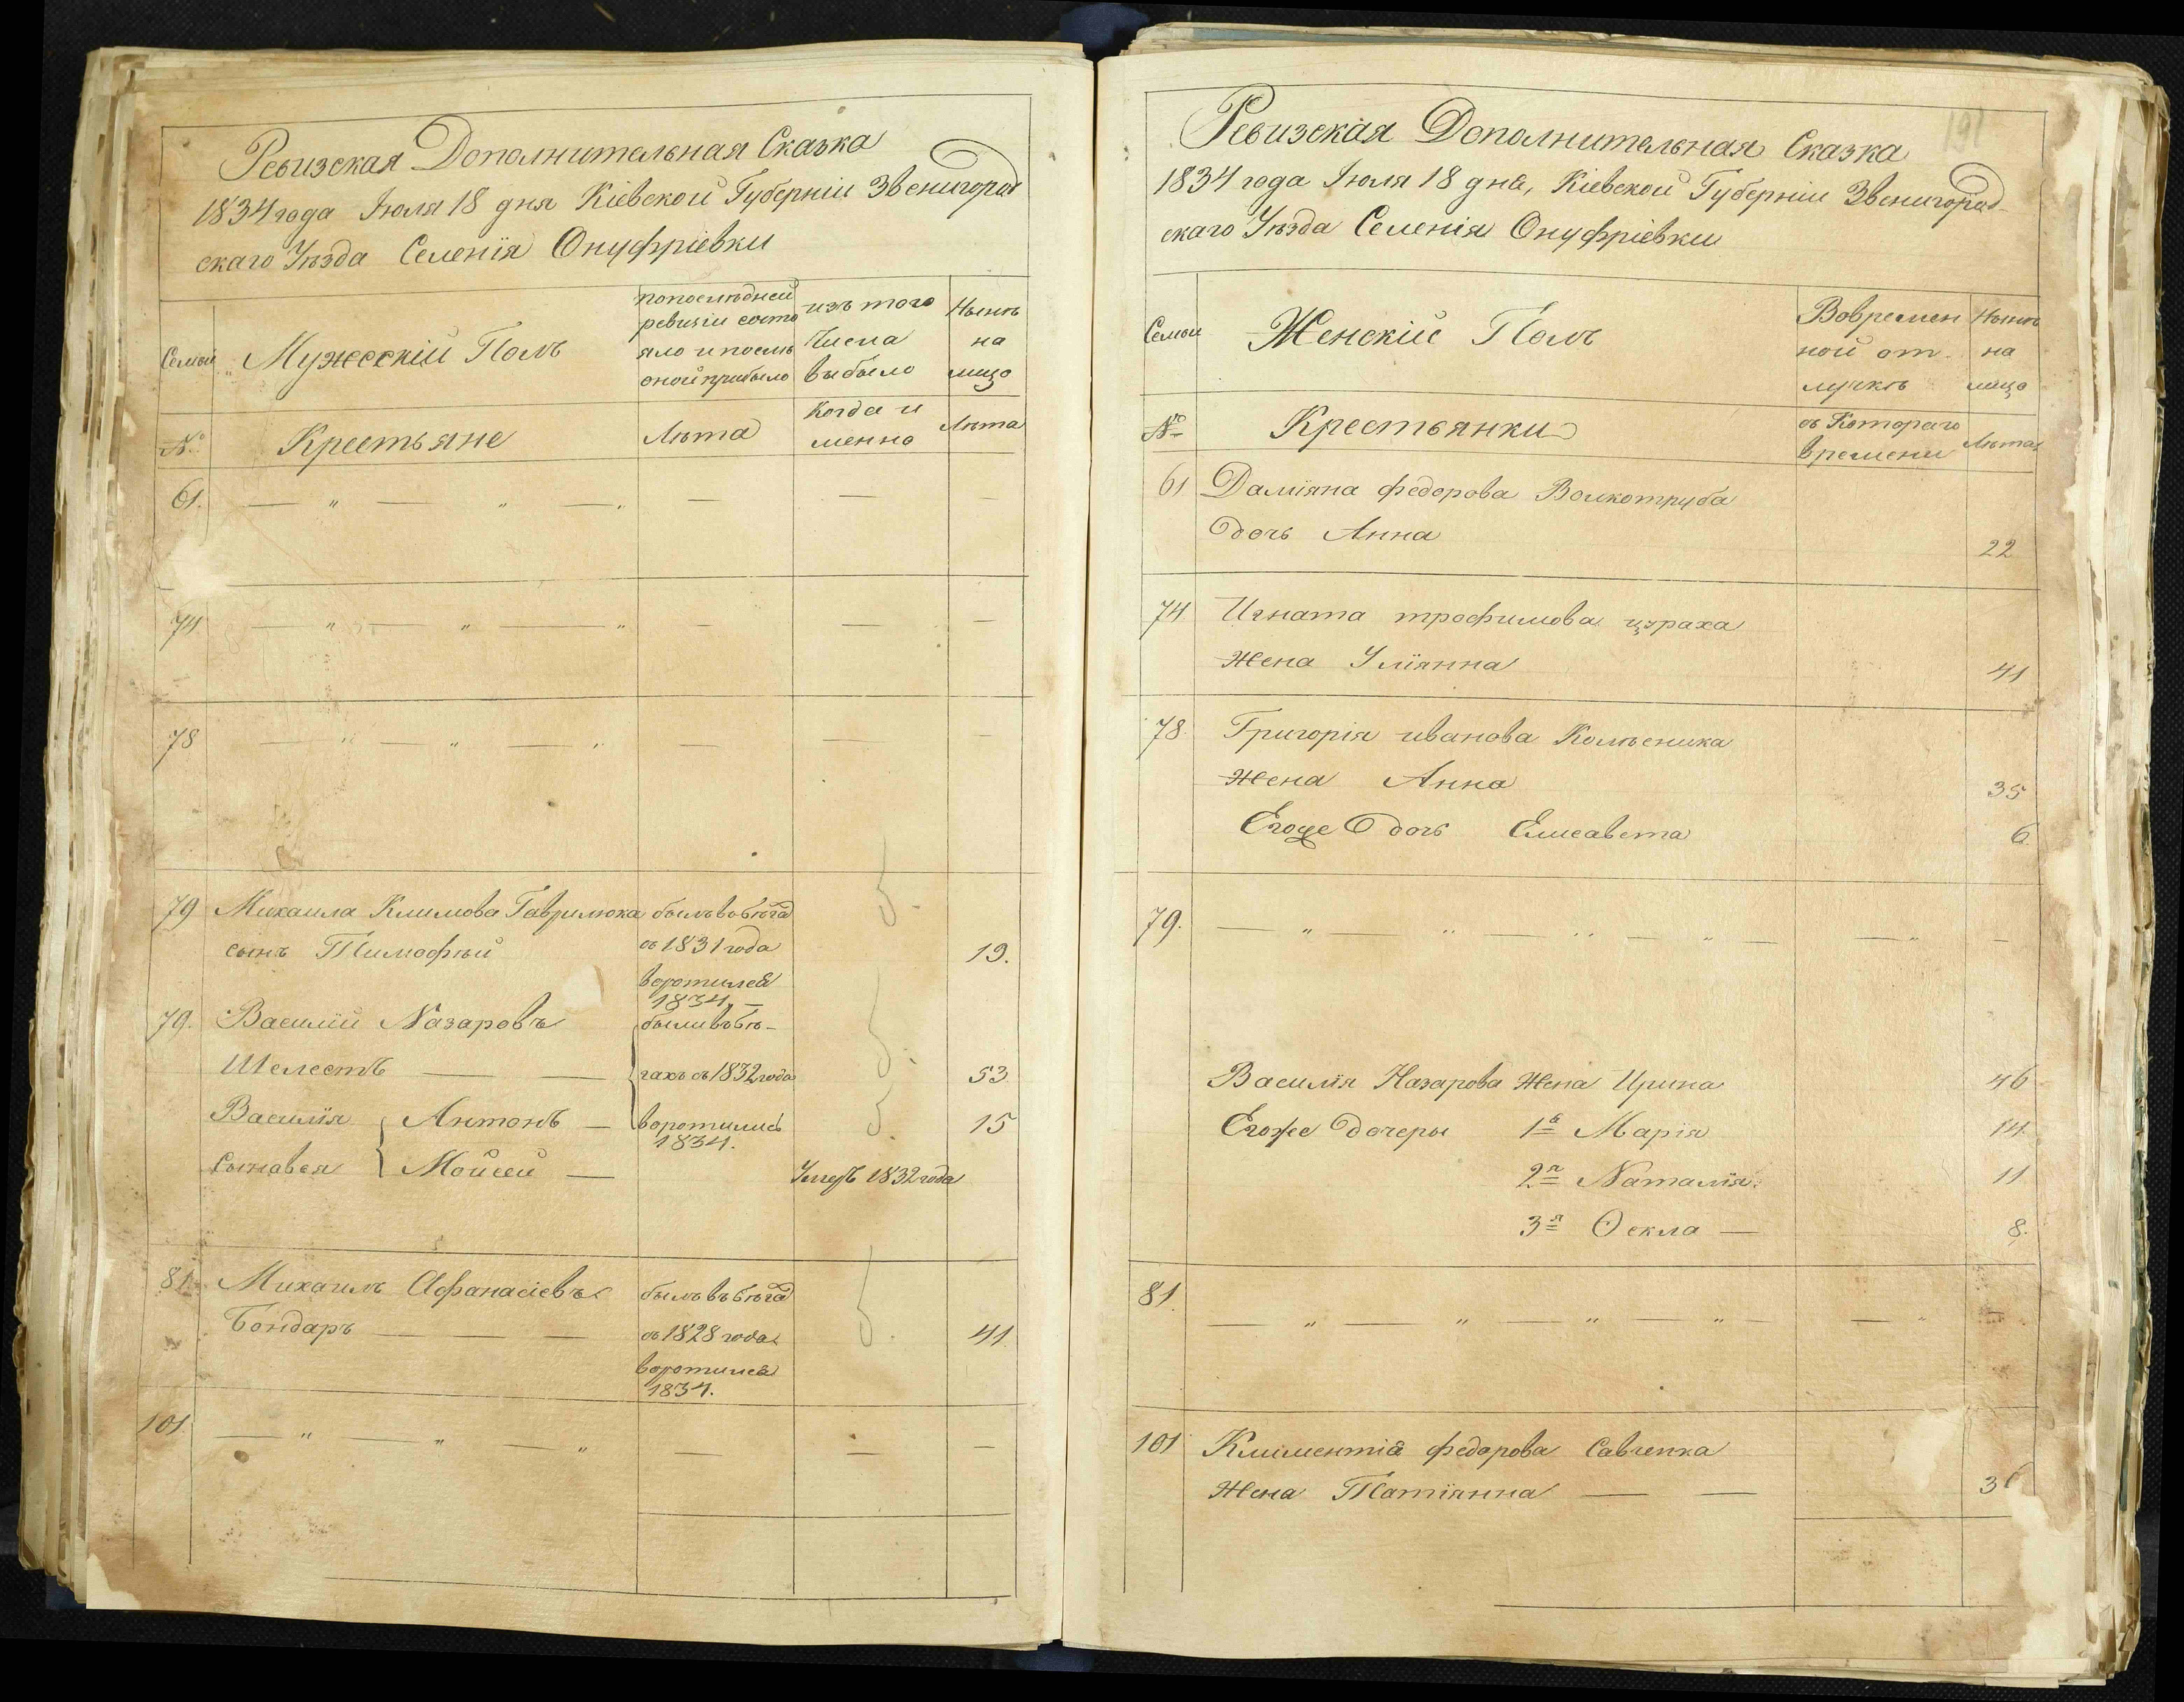 Ревизская Дополнительная Сказка
1834 года Іюля 18 дня Кіевской Губерніи Звенигород
скаго Уѣзда Селенія Онуфріевки
Семьи
Мужескій Полъ
попослѣдней
ревизіи состо
яло и послѣ
оной прибыло
изъ того
числа
выбыло
Нынѣ
на
лицо
№
Крестьяне
Лѣта
Когда и
менно
Лѣта
61.
74
78
79 Михаила Климова Гаврилюка былъ вобѣгах
сынъ Тимофѣй съ 1831 года 19.
воротился
1834,
79. Василій Назаровъ были въ бѣ-
Шелестъ гахъ съ 1832 года 53
Василія Антонъ воротились 15
1834.
Сыновья Мойсей Умеръ 1832 года
81. Михаилъ Афанасіевъ былъ въ бѣгах
Бондаръ съ 1828 года 41
воротился
1834.
101.
191
Ревизская Дополнительная Сказка
1834 года Іюля 18 дня, Кіевской Губерніи Звенигород-
скаго Уѣзда Селенія Онуфріевки
Семьи
Женскій Полъ
Вовремен
ной от
лучкѣ
Нынѣ
на
лицо
№
Крестьянки
съ Котораго
времени
Лѣта
61 Даміяна федорова Волкотруба
дочь Анна 22
74 Игната трофимова цураха
Жена Уліянна 41
78. Григорія иванова Колѣсника
Жена Анна 35
Егоже дочь Елисавета 6.
79.
Василія Назарова Жена Ирина 46
Егоже дочеры 1я Марія 14.
2я Наталія. 11
3я Ѳекла 8.
81.
101 Климентія федорова Савченка
Жена Татіянна